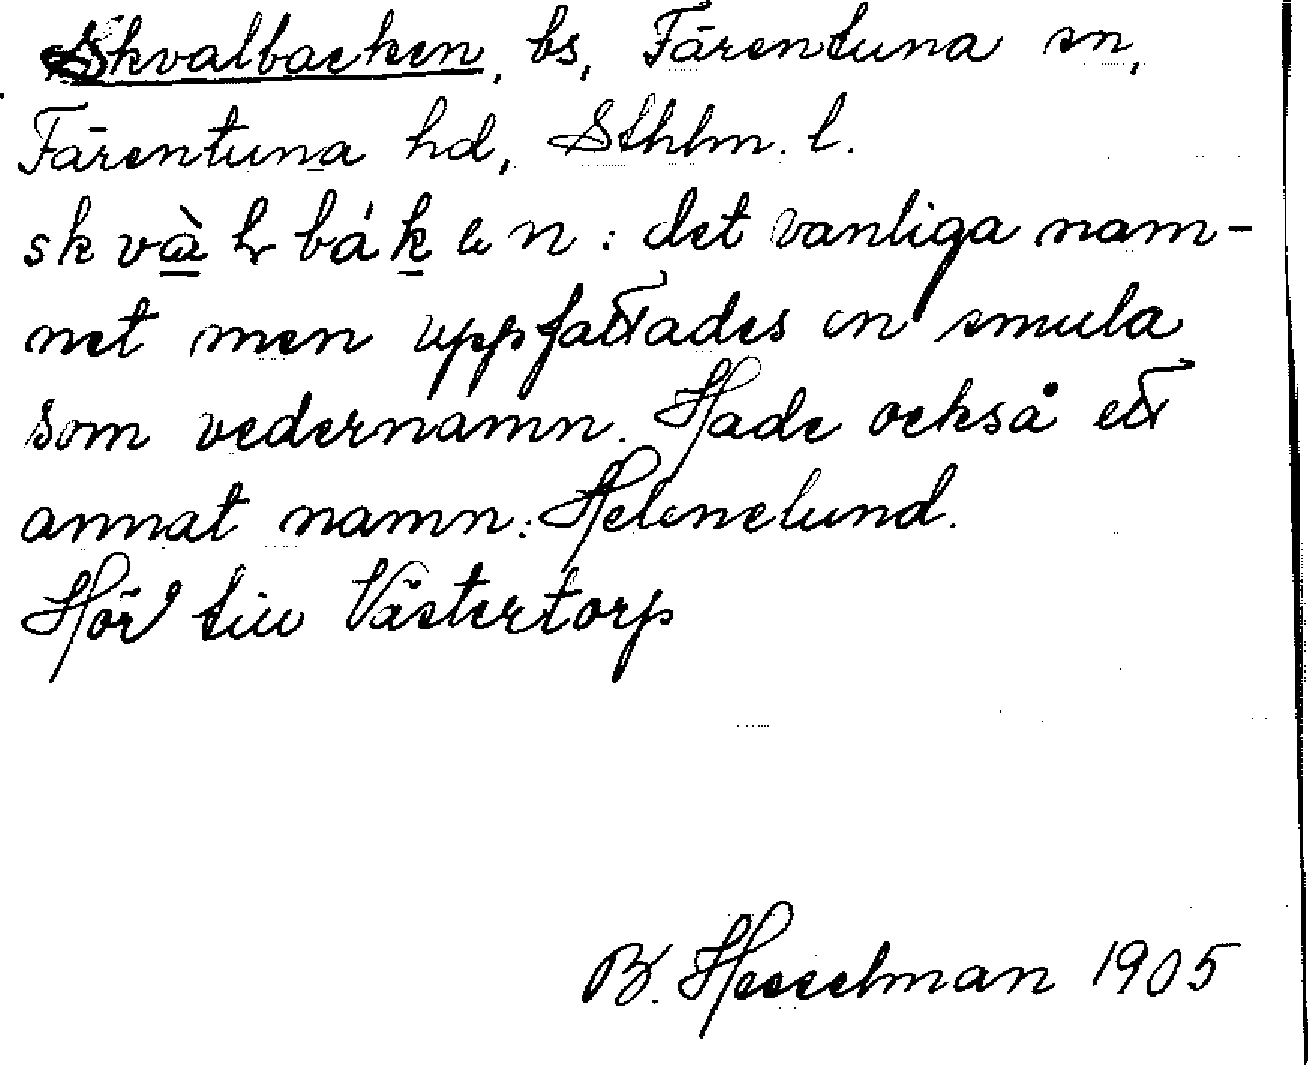 Skvalbacken, bs, Färentuna sn,
Färentuna hd, Sthlm. l.
det vanliga nam-
net men uppfattades en smula
som vedernamn. Hade också ett
annat namn: Helenelund.
Hör till Västertorp
B. Hesselman 1905